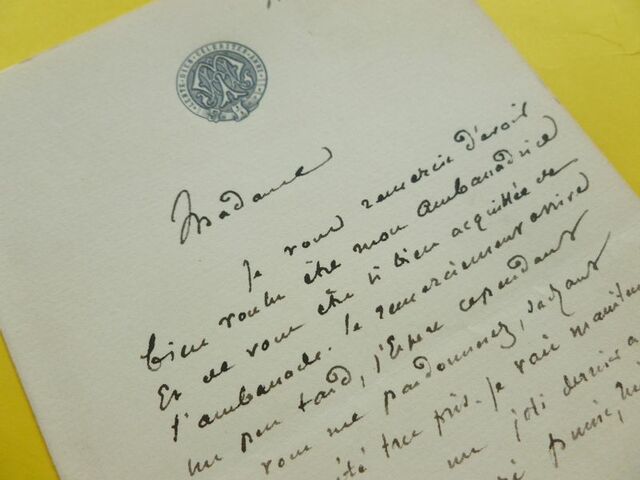 Madame
Je vous remercie d'avoir
bien voulu être mon ambassadrice
Et de vous être si bien acquittée de
l'ambassade. Ce remerciement arrive
un peu tard, j'Espère cependant
vous me pardonnerez, sachant
été très pris. Je vais mainten
un joli dernier a